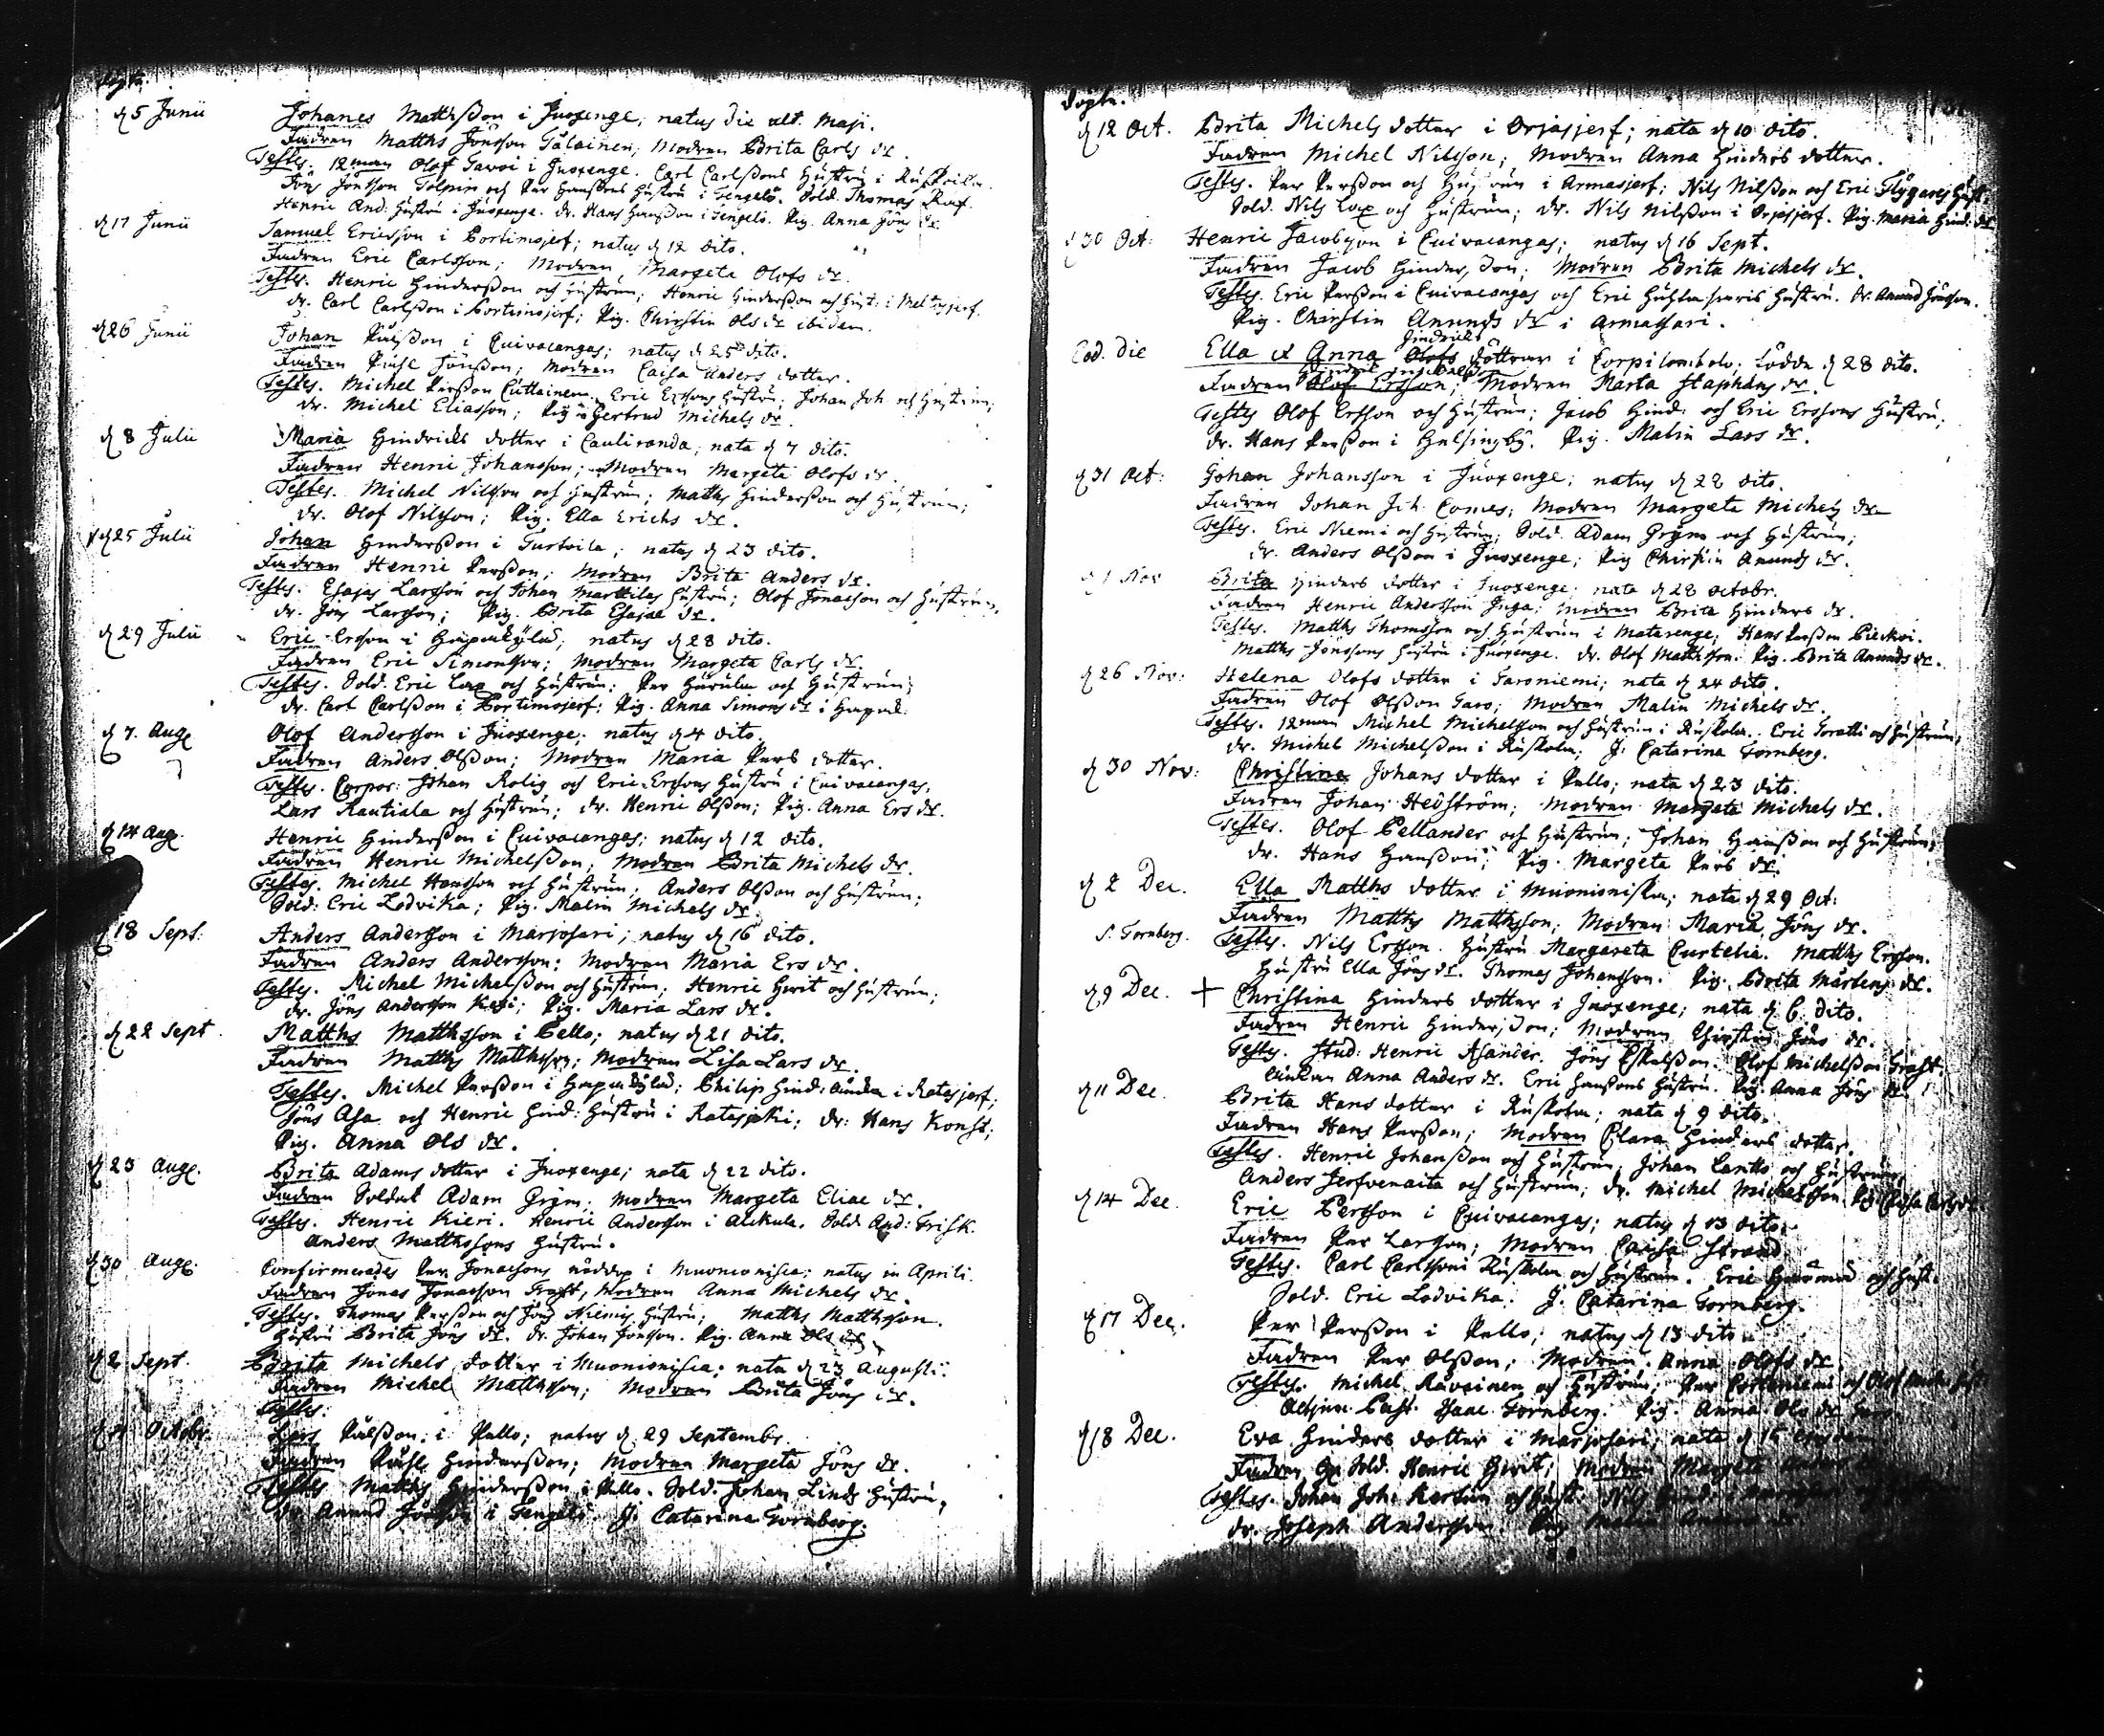 d 5 Junii
Johanes Matthsson i Juoxenge; natus die ult. Maji.
Fadren Matths Jönsson Tålainen; Modren Brita Carls dr.
Testes. 12man Olof Tavoi i Juoxenge. Carl Carlssons Hustru i Ruskoila.
Jöns Jönsson Tolpin och Per Hanssons Hustru i Tengelö. Sold. Thomas Raf.
Henric And: Hustru i Juoxenge. dr. Hans Hansson i Tengelö. Pig. Anna Jöns dr.
d 17 Junii
Samuel Ericsson i Portimojerf; natus d 12 dito.
Fadren Eric Carlsson; Modren Margeta Olofs dr.
Testes. Henric Hindersson och Hustrun; Henric Hindersson och Hust: i Meltosjerf.
dr. Carl Carlsson i Portimojerf; Pig. Chirstin Ols dr ibidem.
d 26 Junii
Johan Pålsson i Cuivacangas; natus d 25 dito.
Fadren Påhl Jönsson; Modren Caisa Anders dotter.
Testes. Michel Persson Cuttainen. Eric Erssons Hustru; Johan Joh. och Hustrun;
dr. Michel Eliasson; Pig. Gertrud Michels dr.
d 8 Julii
Maria Hindrichs dotter i Cauliranda; nata d 7 dito.
Fadren Henric Johansson; Modren Margeta Olofs dr.
Testes. Michel Nilsson och Hustrun; Matths Hindersson och Hustrun;
dr. Olof Nilsson; Pig. Ella Erichs dr.
d 25 Julii
Johan Hindersson i Turtoila; natus d 23 dito.
Fadren Henric Persson; Modren Brita Anders dr.
Testes. Esajas Larsson och Johan Marttilas Hustru; Olof Jonasson och Hustrun.
dr. Jöns Larsson; Pig. Brita Esajae dr.
d 29 Julii
Eric Ersson i Hapakylä; natus d 28 dito.
Fadren Eric Simonsson; Modren Margeta Carls dr.
Testes. Sold. Eric Lax och Hustrun; Per Harula och Hustrun;
dr. Carl Carlsson i Portimojerf; Pig. Anna Simons dr i Hapak.
d 7. Aug.
Olof Andersson i Juoxenge; natus d 4 dito.
Fadren Anders Olsson; Modren Maria Pers dotter.
Testes. Corpor: Johan Rolig och Eric Erssons Hustru i Cuivacangas,
Lars Rautiala och Hustrun; dr. Henric Olsson; Pig. Anna Ers dr.
d 14 Aug.
Henric Hindersson i Cuivacangas; natus d 12 dito.
Fadren Henric Michelsson; Modren Brita Michels dr.
Testes. Michel Hansson och Hustrun; Anders Olsson och Hustrun;
Sold: Eric Lodvika; Pig. Malin Michels dr.
18 Sept:
Anders Andersson i Marjosari; natus d 16 dito.
Fadren Anders Andersson; Modren Maria Ers dr.
Testes. Michel Michelsson och Hustrun; Henric Hvit och Hustrun;
dr. Jöns Andersson Kexi; Pig. Maria Lars dr.
d 22 Sept
Matths Matthsson i Pello; natus d 21 dito.
Fadren Matths Matthsson; Modren Lisa Lars dr.
Testes. Michel Persson i Hapakylä; Philip Hind: i Ratasjerf;
Jöns Asa och Henric Hind: Hustru i Ratasjoki; dr: Hans Konst;
Pig. Anna Ols dr.
d 23 Aug.
Brita Adams dotter i Juoxenge; nata d 22 dito.
Fadren Soldat Adam Grym; Modren Margeta Eliae dr.
Testes. Henric Kieri. Henric Andersson i Alkula. Sold. And: Frisk.
Anders Matthssons Hustru.
d 30 Aug.
Confirmerades Per Jonaesons nöddop i Muonionisca; natus in Aprili.
Fadren Jonas Jonaeson Fraft, Modren Anna Michels dr.
Testes. Thomas Persson och Jöns Niemis Hustru; Matths Matthsson.
Hustru Brita Jöns dr. dr. Johan Jönsson. Pig. Anna Ols dr.
d 2 Sept.
Brita Michels dotter i Muonionisca; nata d 23 Augusti.
Fadren Michel Matthsson; Modren Brita Jöns dr.
Testes.
Octobr.
Lars Pålsson i Pello; natus d. 29 Septembr.
Fadren Påhl Hindersson; Modren Margeta Jöns dr.
Testes Matths Hindersson i Pello. Sold. Johan Linds Hustru,
dr. Anund Jönsson i Tengelö. J. Catarina Tornberg.
Döpte.
d 12 Oct.
Brita Michels dotter i Orjasjerf; nata d 10 dito.
Fadren Michel Nilsson; Modren Anna Hinders dotter.
Testes. Per Persson och Hustrun i Armasjerf; Nils Nilsson och Eric Flygares Hust.
Sold. Nils Lax och Hustrun; dr. Nils Nilsson i Orjasjerf. Pig. Maria Hind. dr
30 Oct:
Henric Jacobsson i Cuivacangas; natus d 16 Sept.
Fadren Jacob Hindersson; Modren Brita Michels dr.
Testes. Eric Persson i Cuivacangas och Eric Hustru. dr. Anund Jönsson.
Pig. Chirstin Anunds dr i Armassari.
Eod. die
Hindrichs
Ella et Anna Olofs döttrar i Corpilombolo; födde d 28 dito.
Fadren Olof Ersson; Modren Marta Staphans dr.
Testes Olof Ersson och Hustrun; Jacob Hind: och Eric Erssons Hustru;
dr. Hans Persson i Helsingby. Pig. Malin Lars dr.
d 31 Oct:
Johan Johansson i Juoxenge; natus d 28 dito.
Fadren Johan Joh. Comes; Modren Margeta Michels dr
Testes. Eric Niemi och Hustrun; Sold. Adam Grym och Hustrun;
dr. Anders Olsson i Juoxenge; Pig Chirstin Anunds dr.
d 1 Nov
Brita Hinders dotter i Juoxenge; nata d 28 Octobr.
Fadren Henric Andersson Juga; Modren Brita Hinders dr.
Testes. Matths Thomsson och Hustrun i Matarenge; Hans Persson Pieckoi.
Matths Jönssons Hustru i Juoxenge. dr. Olof Matthsson. Pig. Brita Anunds dr.
d 26 Nov:
Helena Olofs dotter i Taroniemi; nata d 24 dito.
Fadren Olof Olsson Taro; Modren Malin Michels dr.
Testes. 12man Michel Michelsson och Hustrun i Ruskola. Eric Toratti och Hustrun;
dr. Michel Michelsson i Ruskola; J. Catarina Tornberg.
d 30 Nov:
Christina Johans dotter i Pello; nata d 23 dito.
Fadren Johan Hedström; Modren Margeta Michels dr.
Testes. Olof Pellander och Hustrun; Johan Hansson och Hustrun;
dr. Hans Hansson; Pig. Margeta Pers dr.
d 2 Dec.
Ella Matths dotter i Muonioniska; nata d 29 Oct:
Fadren Matths Matthsson; Modren Maria Jöns dr.
S. Tornberg.
Testes. Nils Ersson. Hustru Margareta Curtelia. Matths Ersson.
Hustru Ella Jöns dr. Thomas Johansson. Pig. Brita Mårtens dr.
d 9 Dec. +
Christina Hinders dotter i Juoxenge; nata d 6. dito.
Fadren Henric Hindersson; Modren Chirstin Jöns dr.
Testes. Stud: Henric Asander. Jöns Eskelsson. Olof Michelsson
Anna Anders dr. Eric Hanssons Hustru. Pig. Anna Jöns dr.
d 11 Dec.
Brita Hans dotter i Ruskola; nata d 9 dito.
Fadren Hans Persson; Modren Clara Hinders dotter.
Testes. Henric Johansson och Hustrun; Johan Lantto och Hustrun;
Anders Jerfvenaita och Hustrun; dr. Michel Michelsson. Pig. Caisa Carls dr.
d 14 Dec.
Eric Persson i Cuivacangas; natus d 13 dito.
Fadren Per Larsson; Modren Caisa Strand
Testes. Carl Carlsson i Ruskola och Hustrun. Eric och Hust.
Sold. Eric Lodvika. J. Catarina Tornberg.
d 17 Dec.
Per Persson i Pello; natus d 13 dito.
Fadren Per Olsson; Modren Anna Olofs dr.
Testes. Michel Råvainen och Hustrun; Per och Olof
Adjunc. Past. Isaac Tornberg. Pig. Anna Ols dr
d 18 Dec.
Eva Hinders dotter i Marjosari; nata d 15
Fadren Sold. Henric Hvit; Modren Margeta Anders
Testes. Johan Joh: och Hust. Nils
dr. Joseph Andersson. Pig Anders dr.